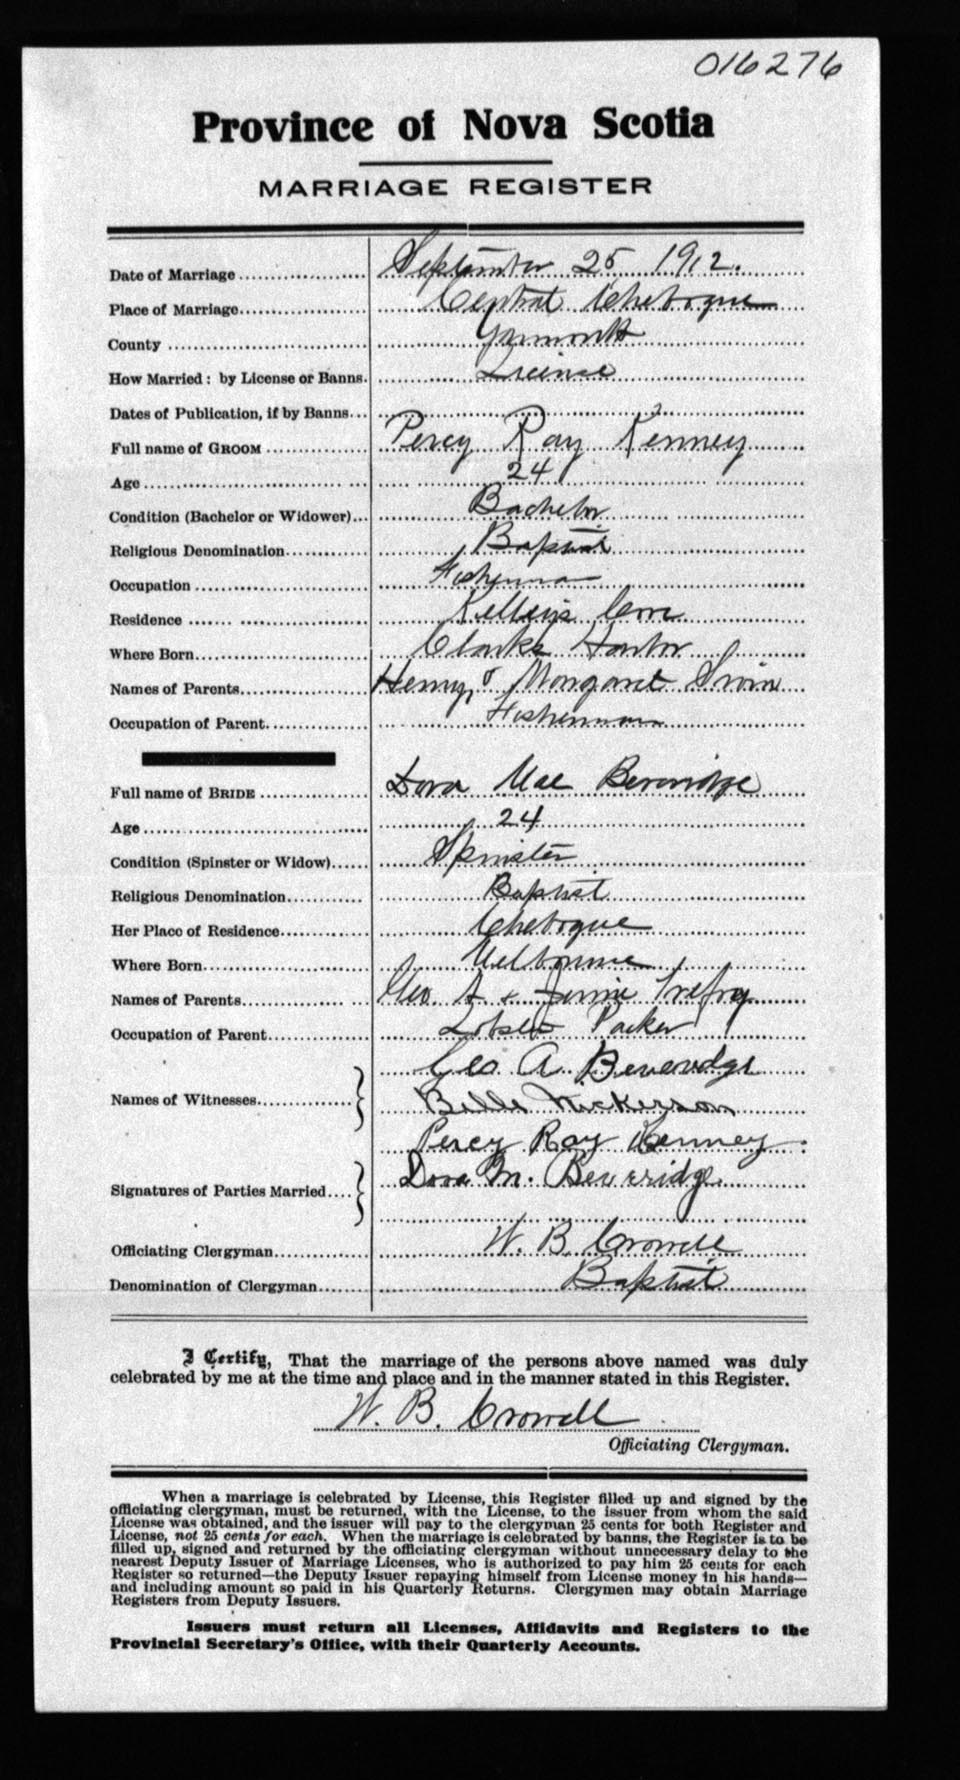 016276
Province of Nova Scotia
MARRIAGE REGISTER
Date of Marriage September 25 1912.
Place of Marriage Central Chebogue
County Yarmouth
How Married: by License or Banns. License
Dates of Publication, if by Banns
Full name of GROOM Percy Ray Kenney
Age 24
Condition (Bachelor or Widower) Bachelor
Religious Denomination Baptist
Occupation Fisherman
Residence Kelleys Cove
Where Born Clarks Harbor
Names of Parents Henry & Margaret Swim
Occupation of Parent Fisherman
Full name of BRIDE Dora Mae Beveridge
Age 24
Condition (Spinster or Widow) Spinster
Religious Denomination Baptist
Her Place of Residence Chebogue
Where Born Melbourne
Names of Parents Geo A & Jennie Trefry
Occupation of Parent Lobster Packer
Geo A. Beveridge
Names of Witnesses Belle Nickerson
Percy Ray Kenney
Dora M. Beveridge
Signatures of Parties Married
Officiating Clergyman W. B. Crowell
Denomination of Clergyman Baptist
I Certify, That the marriage of the persons above named was duly
celebrated by me at the time and place and in the manner stated in this Register.
W. B. Crowell
Officiating Clergyman.
When a marriage is celebrated by License, this Register filled up and signed by the
officiating clergyman, must be returned, with the License, to the issuer from whom the said
License was obtained, and the issuer will pay to the clergyman 25 cents for both Register and
License, not 25 cents for each. When the marriage is celebrated by banns, the Register is to be
filled up, signed and returned by the officiating clergyman without unnecessary delay to the
nearest Deputy Issuer of Marriage Licenses, who is authorized to pay him 25 cents for each
Register so returned—the Deputy Issuer repaying himself from License money in his hands—
and including amount so paid in his Quarterly Returns. Clergymen may obtain Marriage
Registers from Deputy Issuers.
Issuers must return all Licenses, Affidavits and Registers to the
Provincial Secretary's Office, with their Quarterly Accounts.